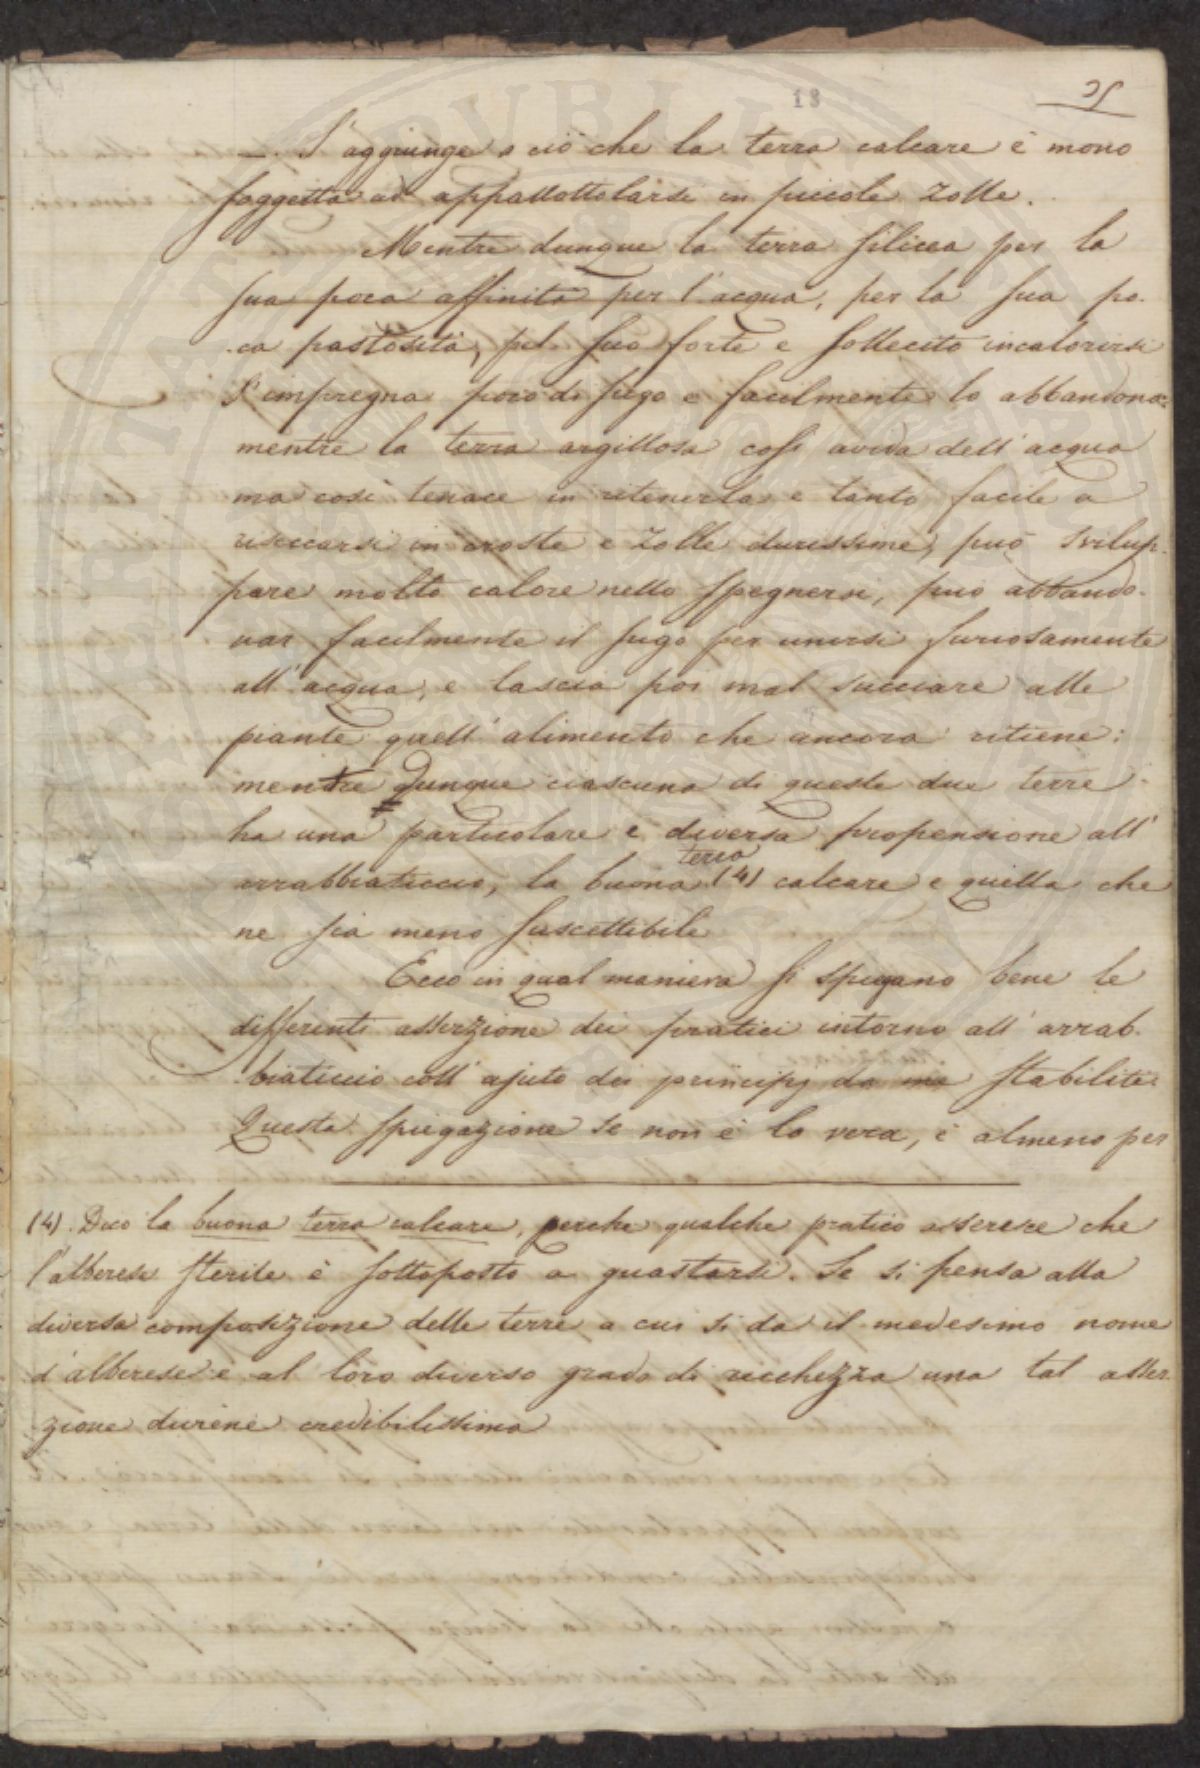 18
— S'aggiunge a ciò che la terra calcare è meno
soggetta ad appallottolarsi in piccole zolle.
Mentre dunque la terra silicea per la
sua poca affinità per l'acqua, per la sua po-
ca pastosità, pel suo forte e sollecito incalorirsi
s'impregna poco di sugo e facilmente lo abbandona:
mentre la terra argillosa così avida dell'acqua
ma così tenace in ritenerla e tanto facile a
risecarsi in croste e zolle durissime, può svilup-
pare molto calore nello spegnersi, può abbando-
nar facilmente il sugo per unirsi furiosamente
all'acqua, e lascia poi mal succiare alle
piante quell'alimento che ancora ritiene:
mentre dunque ciascuna di queste due terre
ha una particolare e diversa propensione all'
arrabbiaticcio, la buona terra (4) calcare è quella che
ne sia meno suscettibile
Ecco in qual maniera si spiegano bene le
differenti asserzione dei pratici intorno all'arrab-
biaticcio coll'ajuto dei principj da me stabilite.
Questa spiegazione se non è la vera, è almeno per
(4). Dico la buona terra calcare, perche qualche pratico asserisce che
l'alberese sterile è sottoposto a guastarsi. Se si pensa alla
diversa composizione delle terre a cui si da il medesimo nome
d'alberese e al loro diverso grado di ricchezza una tal asser-
zione diviene credibilissima